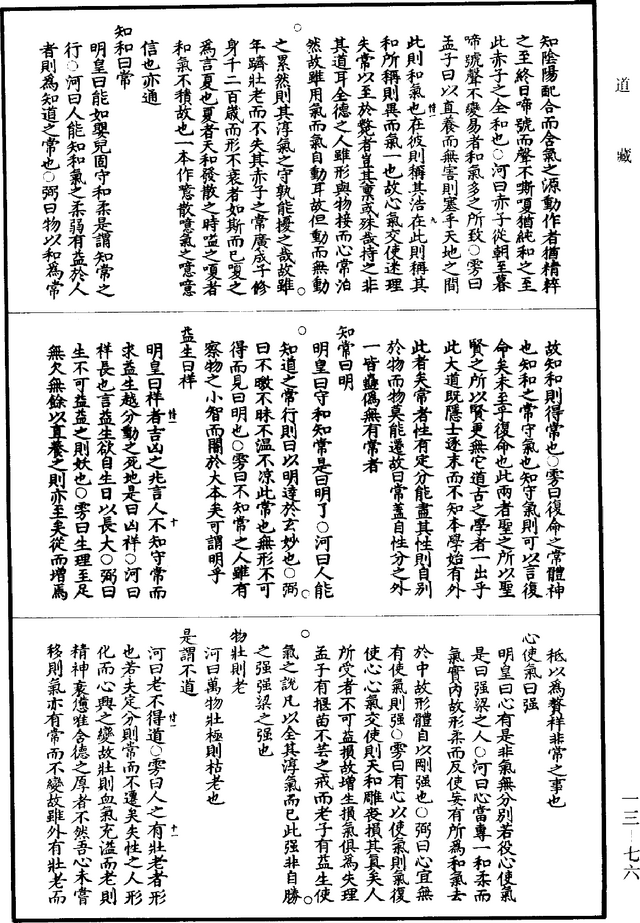 道藏
知陰陽配合而含氣之源動作者猶精粹
之至終日啼號而聲不嘶嗄猶純和之至
此赤子之全和也○河曰赤子從朝至暮
啼號聲不變易者和氣多之所致○雱曰
孟子曰以直養而無害則塞乎天地之間
此則和氣也在彼則稱其浩在此則稱其
和所稱則異而氣一也故心氣交使迷理
失常以至於斃者豈其稟或殊哉持之非
其道耳全德之人雖形與物接而心常泊
然故雖用氣而氣自動耳故但動而無動
之累然則其淳氣之守孰能擾之哉故雖
年躋壯老而不失其赤子之常廣成子修
身千二百歲而形不衰者如斯而已嗄之
為言夏也夏者天和發散之時嗌之嗄者
和氣不積故也一本作噫散噫氣之噫噫
信也亦通
知和曰常
明皇曰能如嬰兒固守和柔是謂知常之
行○河曰人能知和氣之柔弱有益於人
者則為知道之常也○弼曰物以和為常
故知和則得常也○雱曰復命之常體神
也知和之常守氣也知守氣則可以言復
命矣未至乎復命也此兩者聖之所以聖
賢之所以賢更無它道古之學者一出乎
此大道既隱士逐末而不知本學始有外
此者矣常者性有定分能盡其性則自別
於物而物莫能遷故曰常蓋自性分之外
一皆僞無有常者
知常曰明
明皇曰守和知常是曰明了○河曰人能
知道之常行則日以明達於玄妙也○弼
曰不皦不昧不温不凉此常也無形不可
得而見曰明也○雱曰不知常之人雖有
察物之小智而闇於大本矣可謂明乎
益生曰祥
明皇曰祥者吉凶之兆言人不知守常而
求益生越分動之死地是曰凶祥○河曰
祥長也言益生欲自生日以長大○弼曰
生不可益益之則妖也○雱曰生理至足
無欠無餘以直養之則亦至矣從而增焉
秖以為贅祥非常之事也
心使氣曰强
明皇曰心有是非氣無分別若役心使氣
是曰强梁之人○河曰心當專一和柔而
氣實內故形柔而反使妄有所為和氣去
於中故形體自以剛强也○弼曰心宜無
有使氣則强○雱曰有心以使氣則氣復
使心心氣交使則天和雕喪損其真矣人
所受者不可益損故增生損氣俱為失理
孟子有揠苗不芸之戒而老子有益生使
氣之說凡以全其淳氣而已此强非自勝
之强强梁之强也
物壯則老
河曰萬物壯極則枯老也
是謂不道
河曰老不得道○雱曰人之有壯老者形
也若夫定分則常而不遷矣失性之人形
化而心與之變故壯則血氣充溢而老則
精神衰憊唯含德之厚者不然吾心未嘗
移則氣亦有常而不變故雖外有壯老而
一三-七六